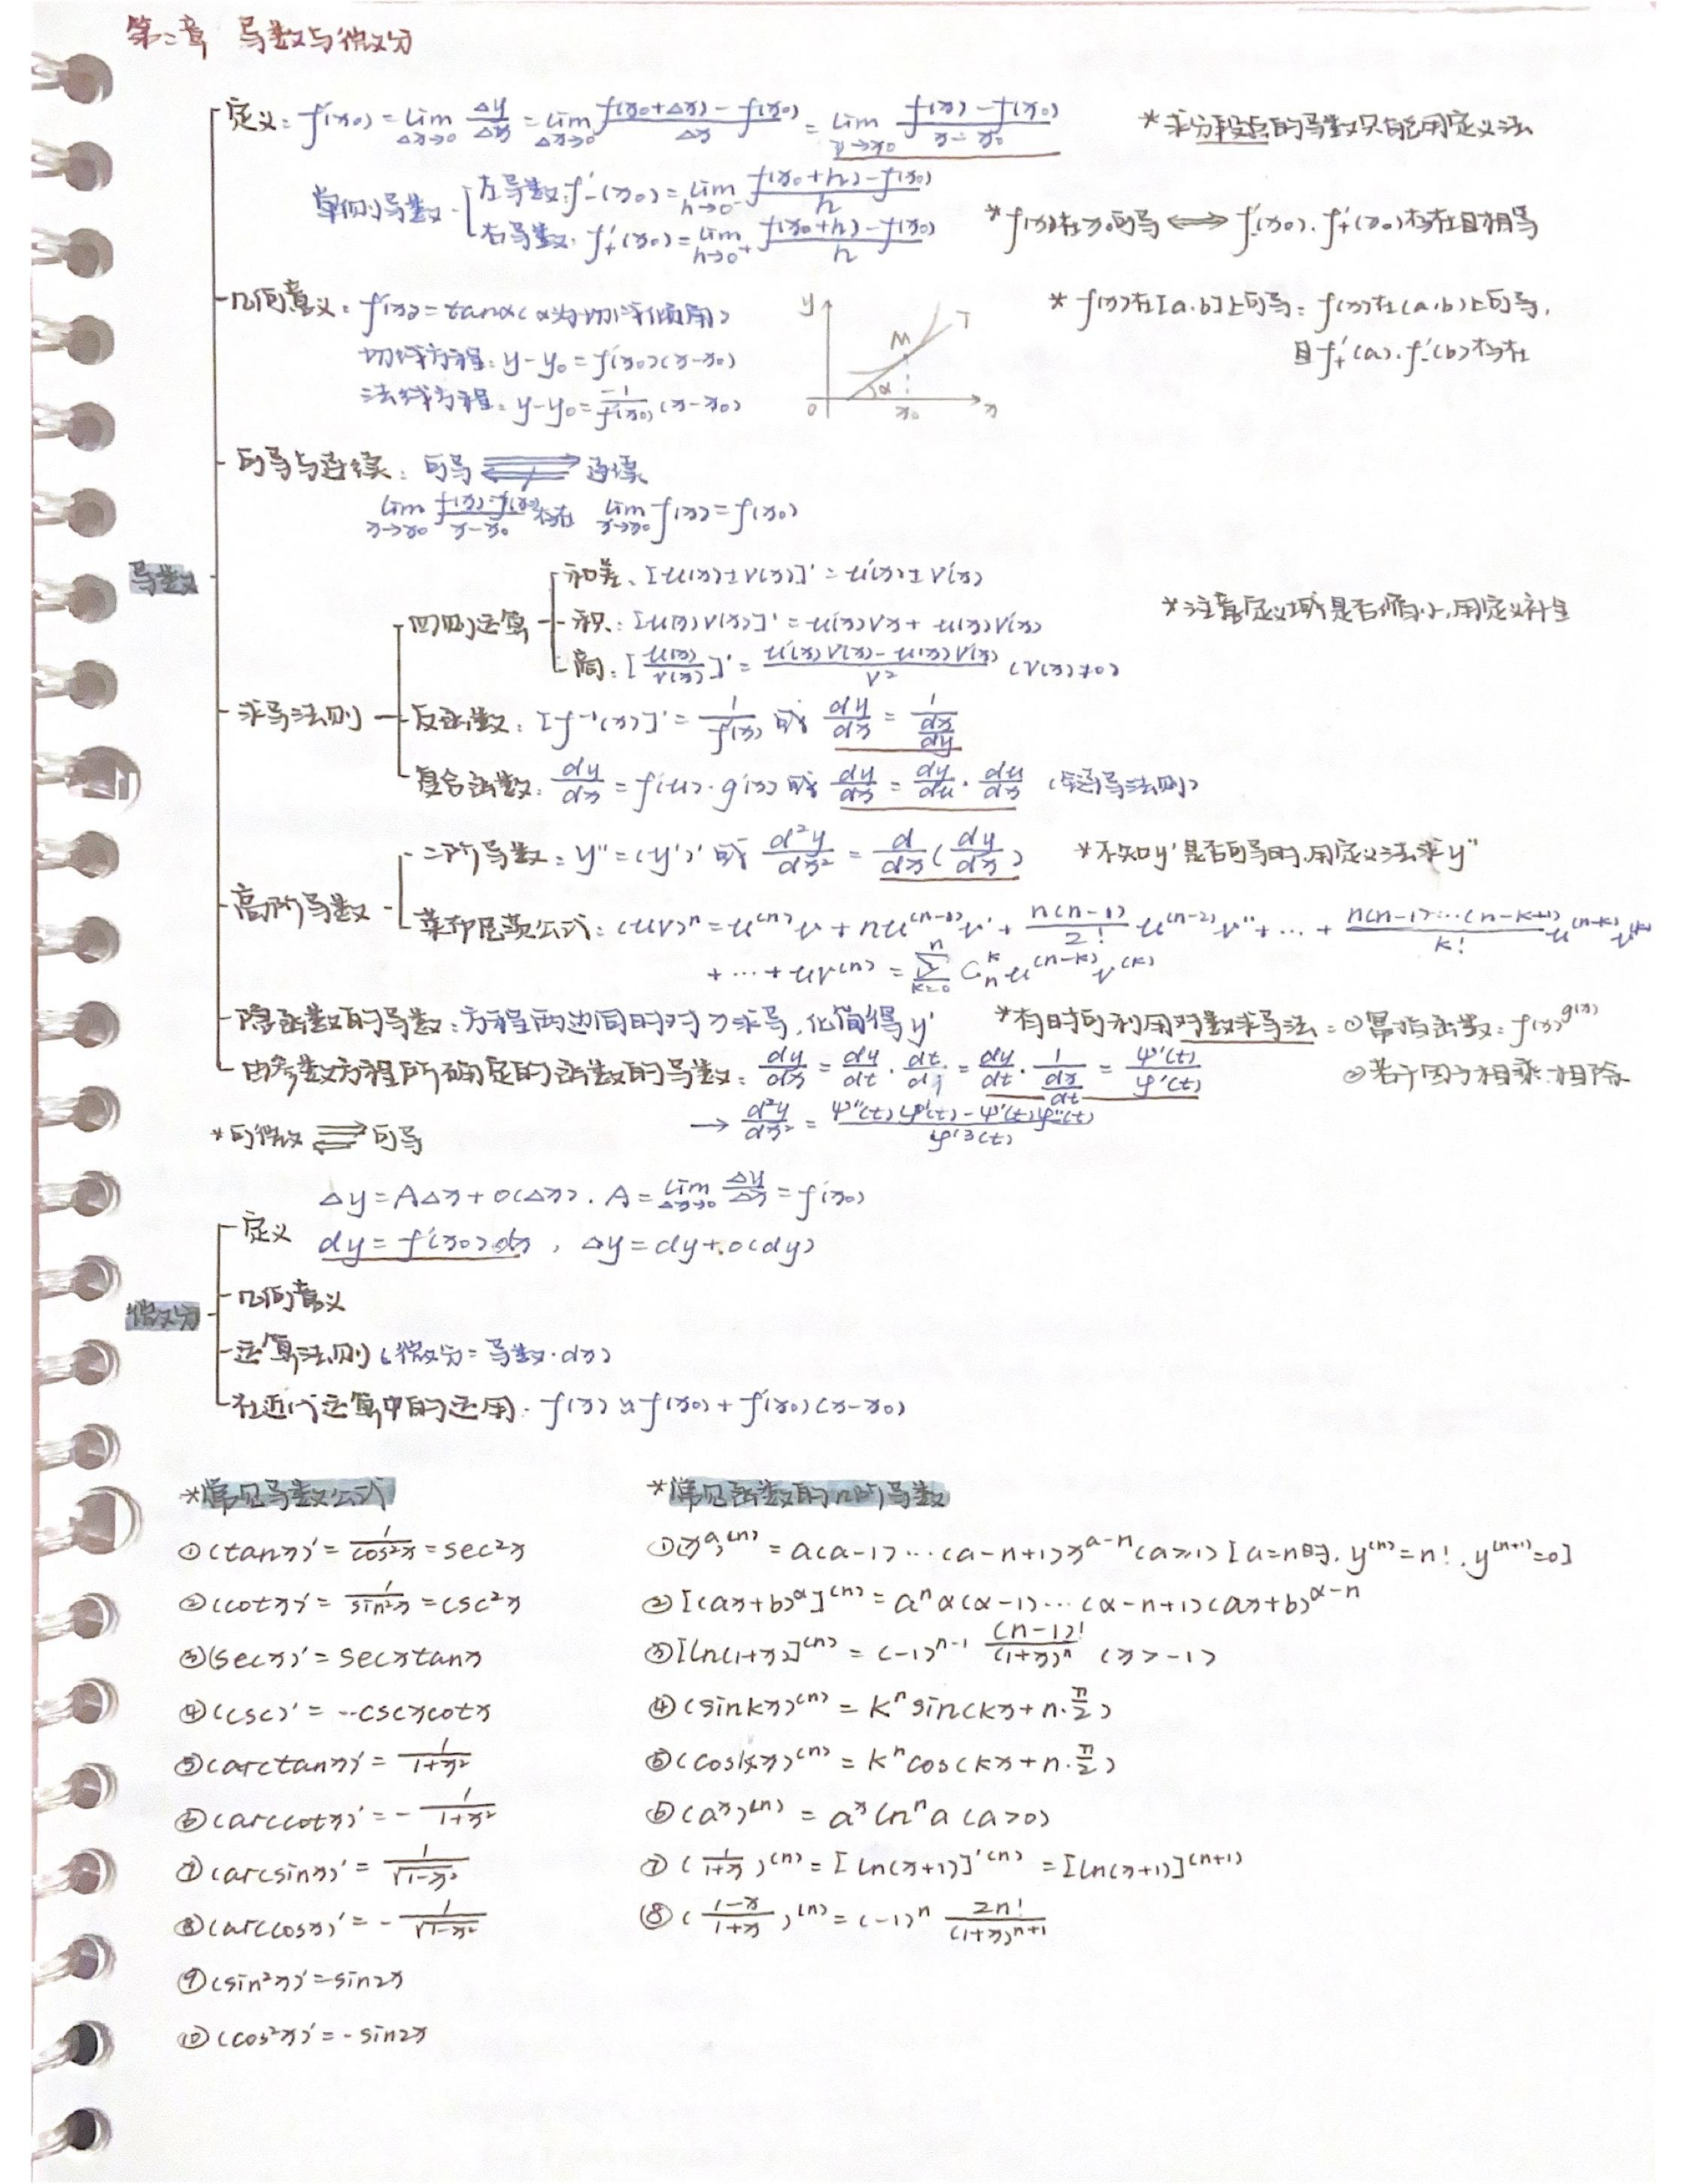 第二章 导数与微分
定义: f'(x₀) = lim_{Δx→0} Δy/Δx = lim_{Δx→0} [f(x₀+Δx) - f(x₀)]/Δx = lim_{x→x₀} [f(x) - f(x₀)]/(x - x₀) *求分段点的导数只能用定义法
单侧导数 左导数: f'₋(x₀) = lim_{h→0⁻} [f(x₀+h) - f(x₀)]/h
右导数: f'₊(x₀) = lim_{h→0⁺} [f(x₀+h) - f(x₀)]/h *f(x)在x₀可导 ⟺ f'₋(x₀), f'₊(x₀)存在且相等
几何意义: f'(x) = tanα (α为切线倾角) y M T α 0 x₀ x *f(x)在[a,b]上可导: f(x)在(a,b)上可导,
且f'₊(a), f'₋(b)存在
切线方程: y-y₀ = f'(x₀)(x-x₀)
法线方程: y-y₀ = -1/f'(x₀) (x-x₀)
可导与连续: 可导 ⇌ 连续
lim_{x→x₀} [f(x)-f(x₀)]/(x-x₀) 存在 lim_{x→x₀} f(x) = f(x₀)
导数
四则运算 和差: [u(x)±v(x)]' = u'(x)±v'(x)
积: [u(x)v(x)]' = u'(x)vx + u(x)v'(x) *注意定义域是否缩小,用定义补全
商: [u(x)/v(x)]' = [u'(x)v(x) - u(x)v'(x)]/v² (v(x)≠0)
求导法则 反函数: [f⁻¹(x)]' = 1/f'(x) 或 dy/dx = 1/(dx/dy)
复合函数: dy/dx = f'(u)·g'(x) 或 dy/dx = dy/du · du/dx (链导法则)
高阶导数 二阶导数: y'' = (y')' 或 d²y/dx² = d/dx (dy/dx) *不知y'是否可导时,用定义法求y''
莱布尼茨公式: (uv)ⁿ = u⁽ⁿ⁾v + nu⁽ⁿ⁻¹⁾v' + n(n-1)/2! u⁽ⁿ⁻²⁾v'' + … + n(n-1)…(n-k+1)/k! u⁽ⁿ⁻ᵏ⁾v⁽ᵏ⁾
+ … + uv⁽ⁿ⁾ = Σ_{k=0}^{n} C_n^k u⁽ⁿ⁻ᵏ⁾v⁽ᵏ⁾
隐函数的导数: 方程两边同时对x求导,化简得y' *有时可利用对数求导法: ①幂指函数: f(x)^{g(x)}
由参数方程所确定的函数的导数: dy/dx = dy/dt · dt/d = dy/dt · 1/(dx/dt) = ψ'(t)/φ'(t) ②若干因子相乘、相除
→ d²y/dx² = [ψ''(t)φ'(t) - ψ'(t)φ''(t)]/φ'³(t)
*可微 ⇌ 可导
微分
定义 Δy = AΔx + o(Δx), A = lim_{Δx→0} Δy/Δx = f'(x₀)
dy = f'(x₀)dx, Δy = dy + o(dy)
几何意义
运算法则 (微分 = 导数·dx)
在近似运算中的运用: f(x) ≈ f(x₀) + f'(x₀)(x-x₀)
*常见导数公式
①(tanx)' = 1/cos²x = sec²x
②(cotx)' = 1/sin²x = csc²x
③(secx)' = secxtanx
④(csc)' = -cscxcotx
⑤(arctanx)' = 1/(1+x²)
⑥(arccotx)' = - 1/(1+x²)
⑦(arcsinx)' = 1/√(1-x²)
⑧(arccosx)' = - 1/√(1-x²)
⑨(sin²x)' = sin2x
⑩(cos²x)' = -sin2x
*常见函数的n阶导数
①(xᵃ)⁽ⁿ⁾ = a(a-1)…(a-n+1)xᵃ⁻ⁿ (a≥1) [a=n时, y⁽ⁿ⁾=n!, y⁽ⁿ⁺¹⁾=0]
②[(ax+b)^α]⁽ⁿ⁾ = aⁿα(α-1)…(α-n+1)(ax+b)^{α-n}
③[ln(1+x)]⁽ⁿ⁾ = (-1)ⁿ⁻¹ (n-1)!/(1+x)ⁿ (x>-1)
④(sinkx)⁽ⁿ⁾ = kⁿsin(kx+n·π/2)
⑤(coskx)⁽ⁿ⁾ = kⁿcos(kx+n·π/2)
⑥(aˣ)⁽ⁿ⁾ = aˣlnⁿa (a>0)
⑦(1/(1+x))⁽ⁿ⁾ = [ln(x+1)]'⁽ⁿ⁾ = [ln(x+1)]⁽ⁿ⁺¹⁾
⑧((1-x)/(1+x))⁽ⁿ⁾ = (-1)ⁿ 2n!/(1+x)ⁿ⁺¹